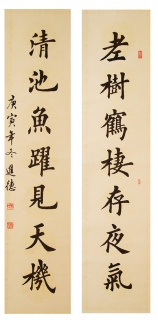 老樹鶴棲存夜氣
清池魚躍見天機
庚寅年冬進德